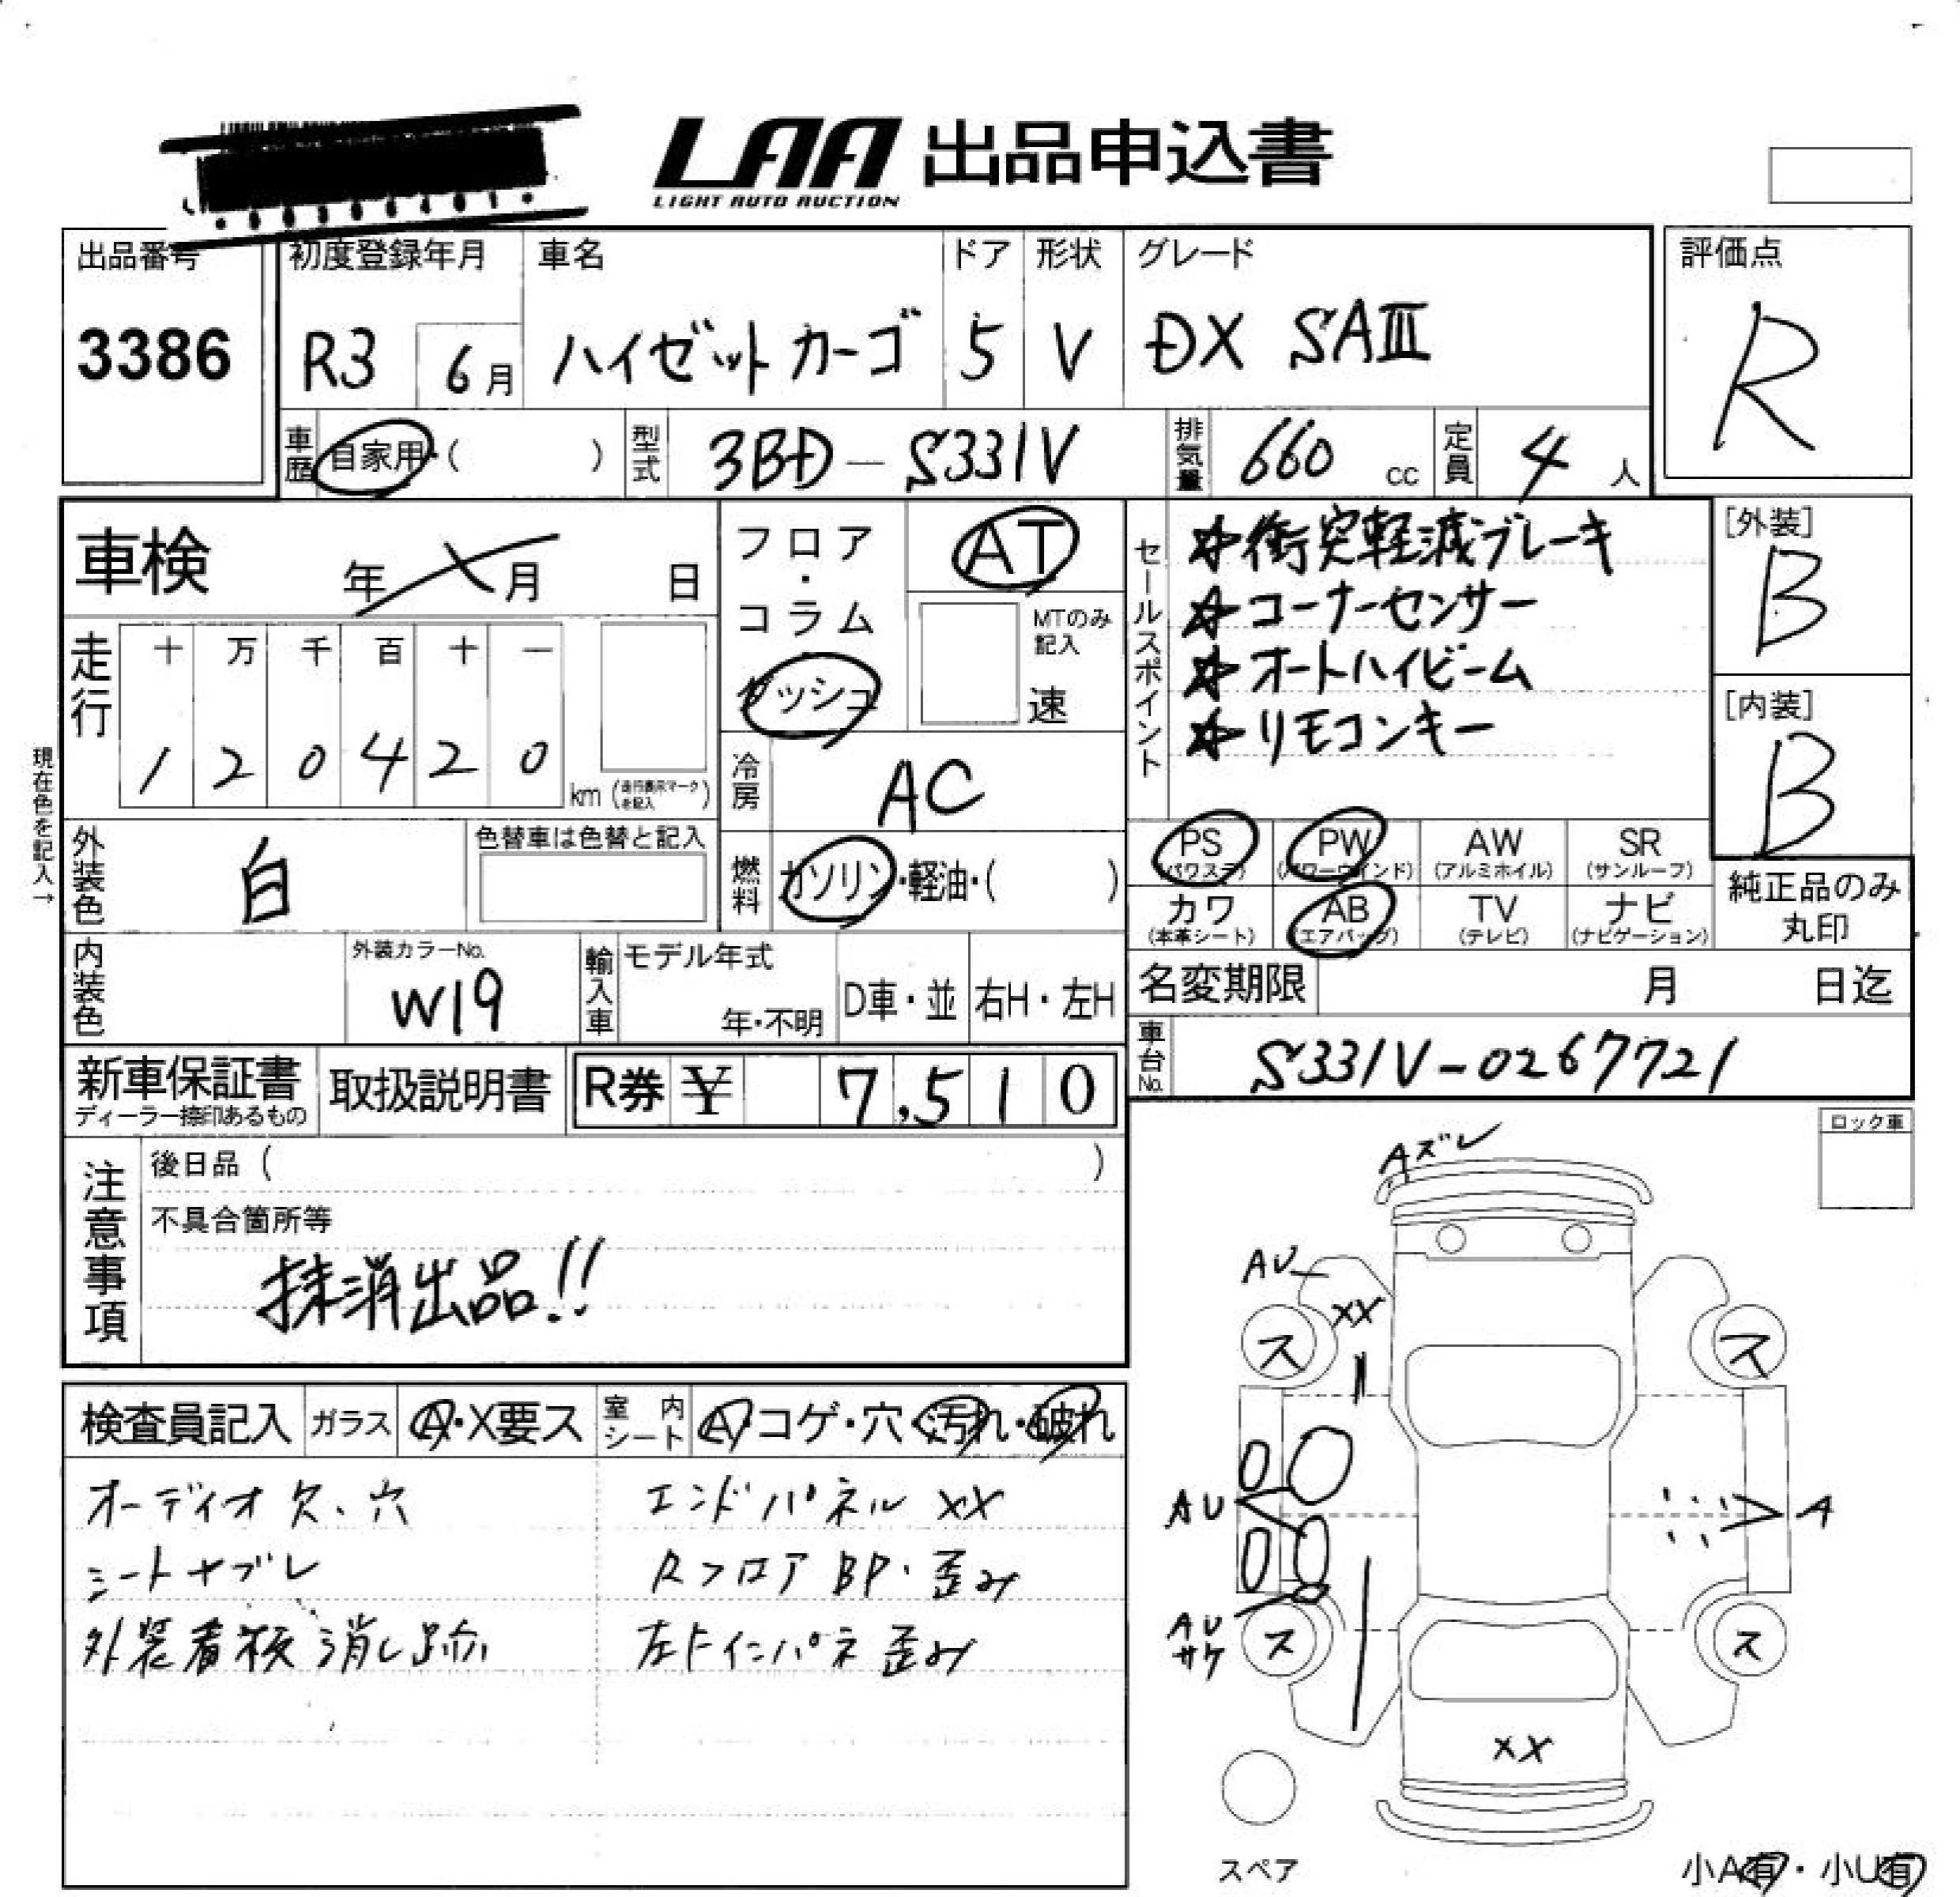 LAA 出品申込書
LIGHT AUTO AUCTION
出品番号
3386
初度登録年月
R3 6月
車名
ハイゼットカーゴ
ドア
5
形状
V
グレード
DX SAⅢ
評価点
R
車歴
自家用・( )
型式
3BD-S331V
排気量
660 cc
定員
4人
車検 年 月 日
走行
十 万 千 百 十 一
1 2 0 4 2 0 km
(走行表示マークを記入)
現在色を記入→
外装色
白
色替車は色替と記入
フロア・コラム
ダッシュ
AT
MTのみ記入
速
冷房
AC
燃料
ガソリン・軽油・( )
セールスポイント
☆衝突軽減ブレーキ
☆コーナーセンサー
☆オートハイビーム
☆リモコンキー
[外装]
B
[内装]
B
PS (パワステ)
PW (パワーウインド)
AW (アルミホイル)
SR (サンルーフ)
カワ (本革シート)
AB (エアバッグ)
TV (テレビ)
ナビ (ナビゲーション)
純正品のみ丸印
内装色
外装カラーNo.
W19
輸入車
モデル年式
年・不明
D車・並
右H・左H
名変期限 月 日迄
車台No.
S331V-0267721
新車保証書
ディーラー捺印あるもの
取扱説明書
R券 ¥ 7,510
注意事項
後日品 ( )
不具合箇所等
抹消出品!!
検査員記入
ガラス
A・X要ス
室内シート
A・コゲ・穴・汚れ・破れ
オーディオ欠、穴
シートヤブレ
外装看板消し跡
エンドパネル XX
Rフロア BP・歪み
左Fインパネ 歪み
ロック車
Aズレ
AU
XX
ス
ス
AU
A
AU
サケ
ス
ス
XX
スペア
小A有・小U有